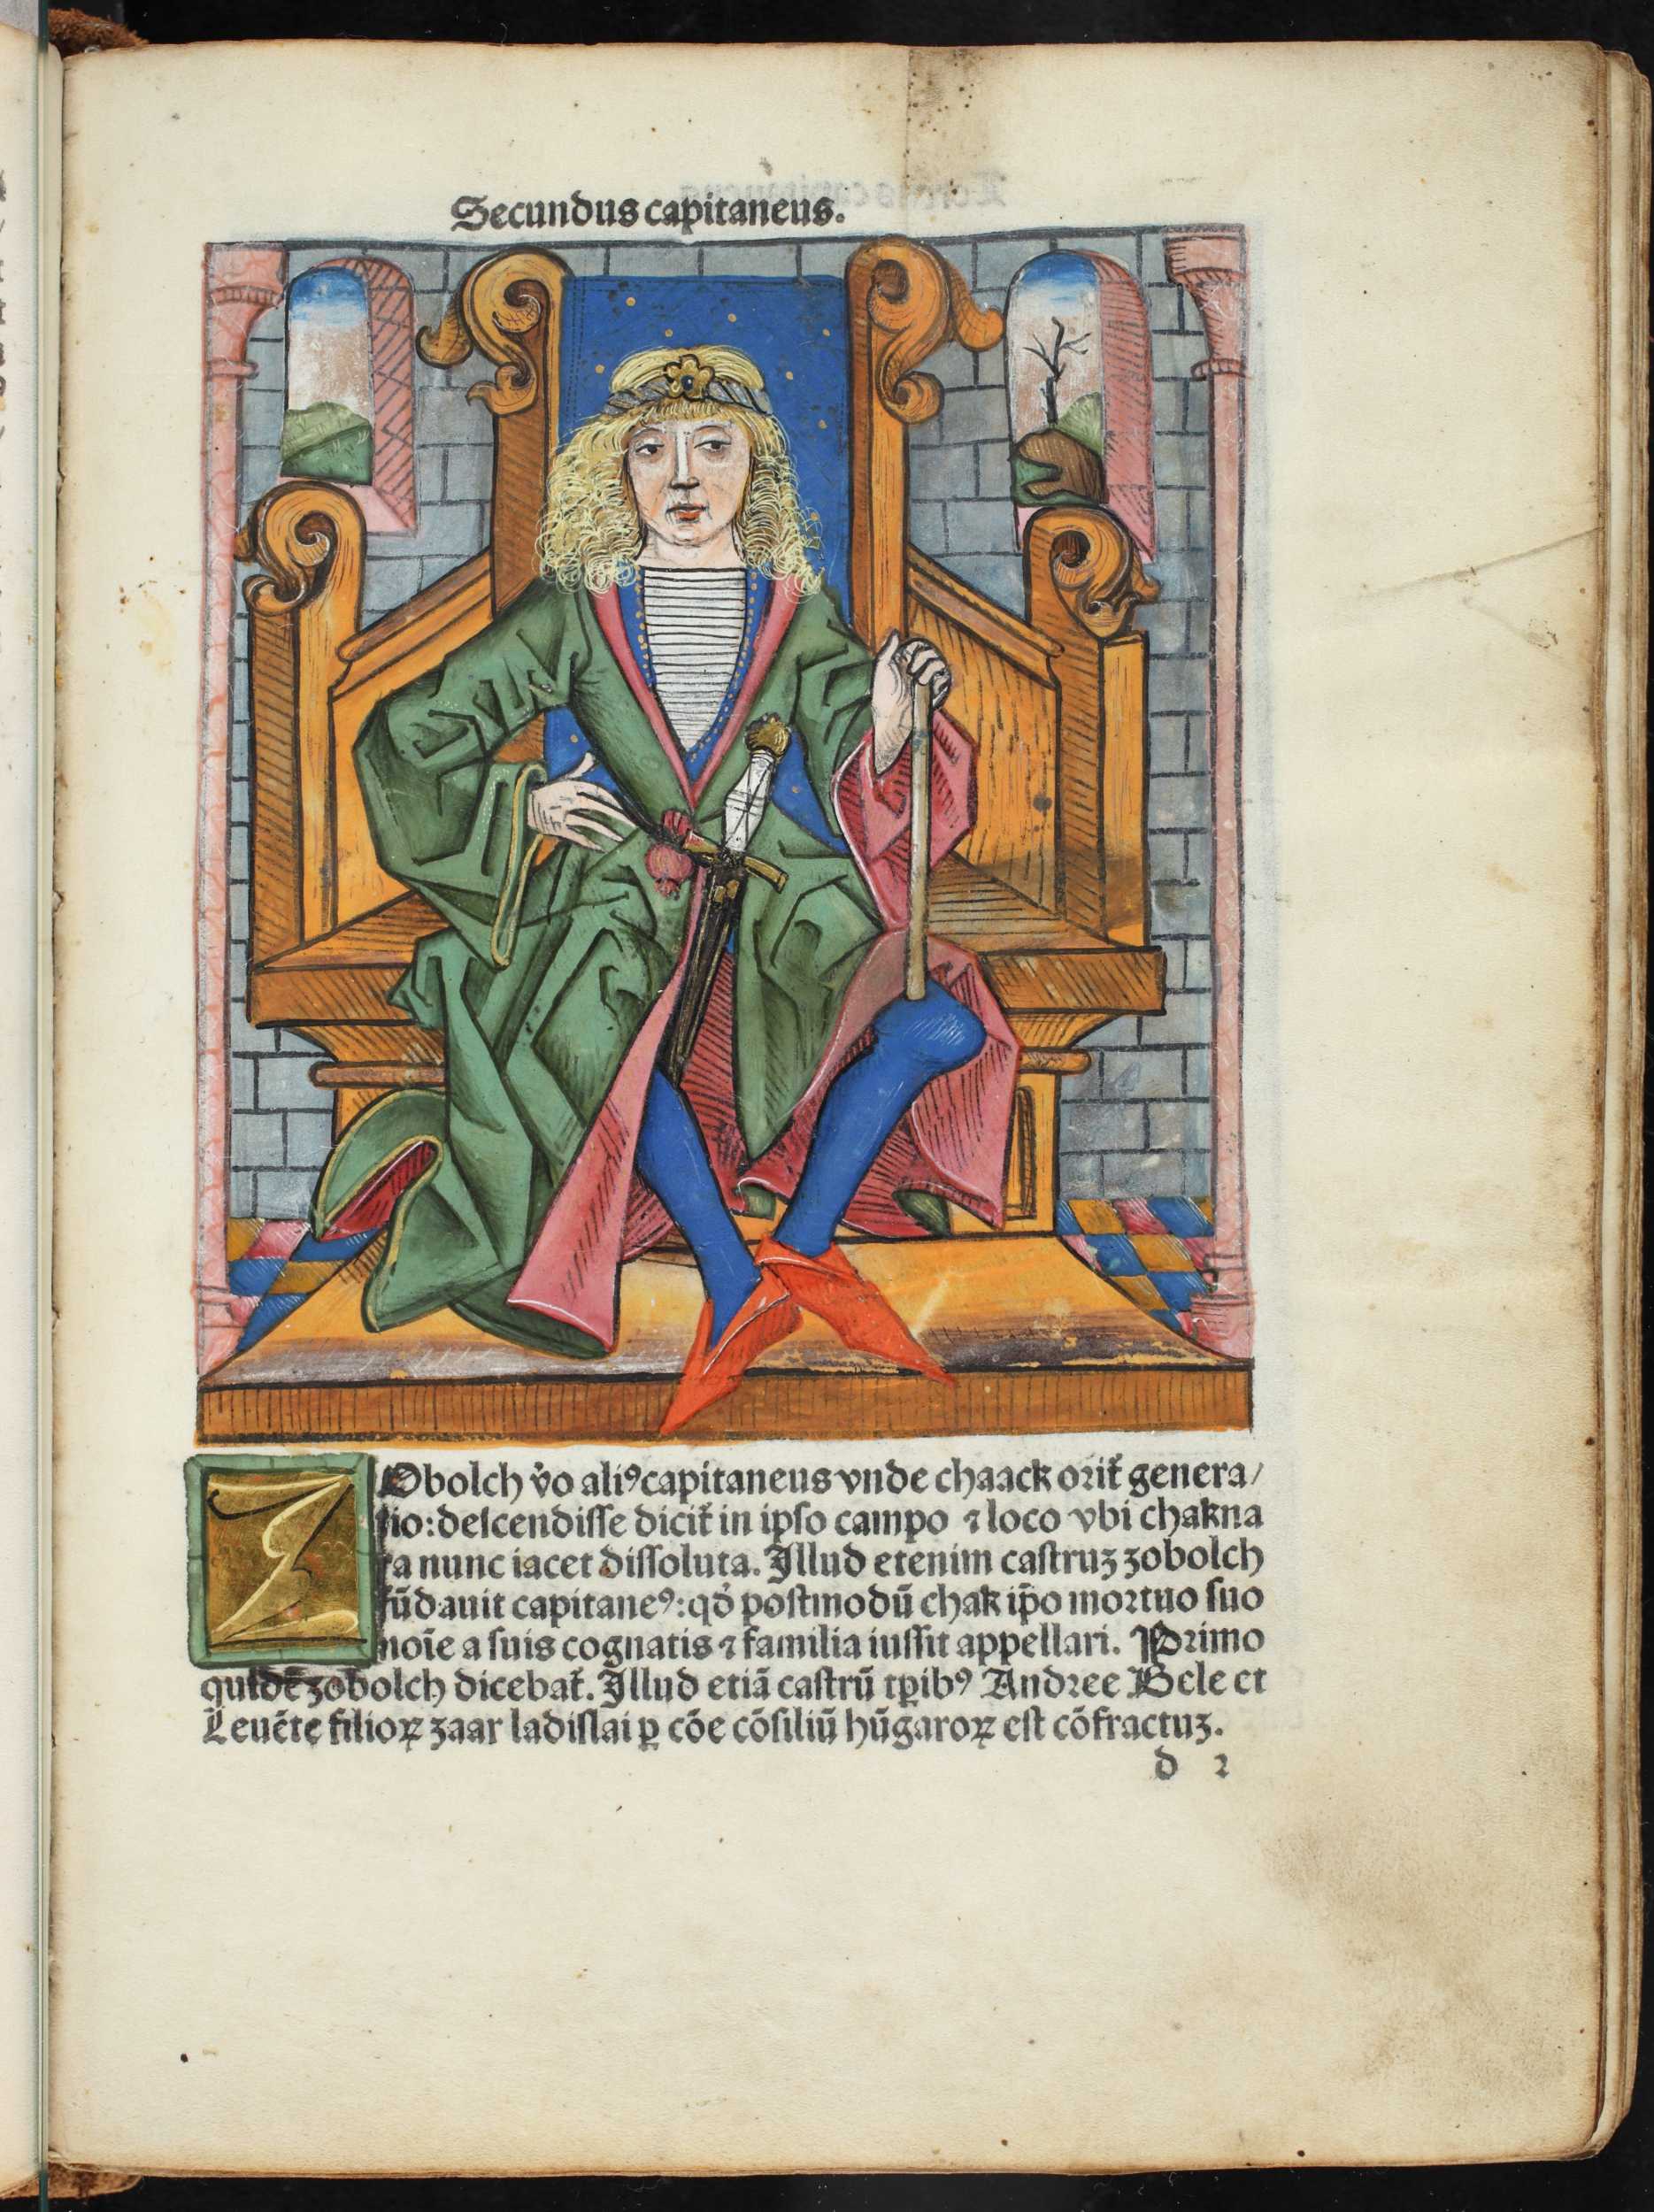 Secundus capitaneus.
ZObolch v̉o aliꝰ capitaneus vnde chaack orit̃ genera/
tio: descendisse dicit̃ in ipso campo ⁊ loco vbi chakna
ra nunc iacet dissoluta. Illud etenim castruʒ zobolch
fũdauit capitaneꝰ: qď postmodũ chak ip̃o mortuo suo
noĩe a suis cognatis ⁊ familia iussit appellari. Primo
quidẽ zobolch dicebat̃. Illud etiã castrũ tꝑibꝰ Andree Bele et
Leuẽte filioꝝ zaar ladislai ꝑ cõe cõsiliũ hũgaroꝝ est cõfractuʒ.
d 2